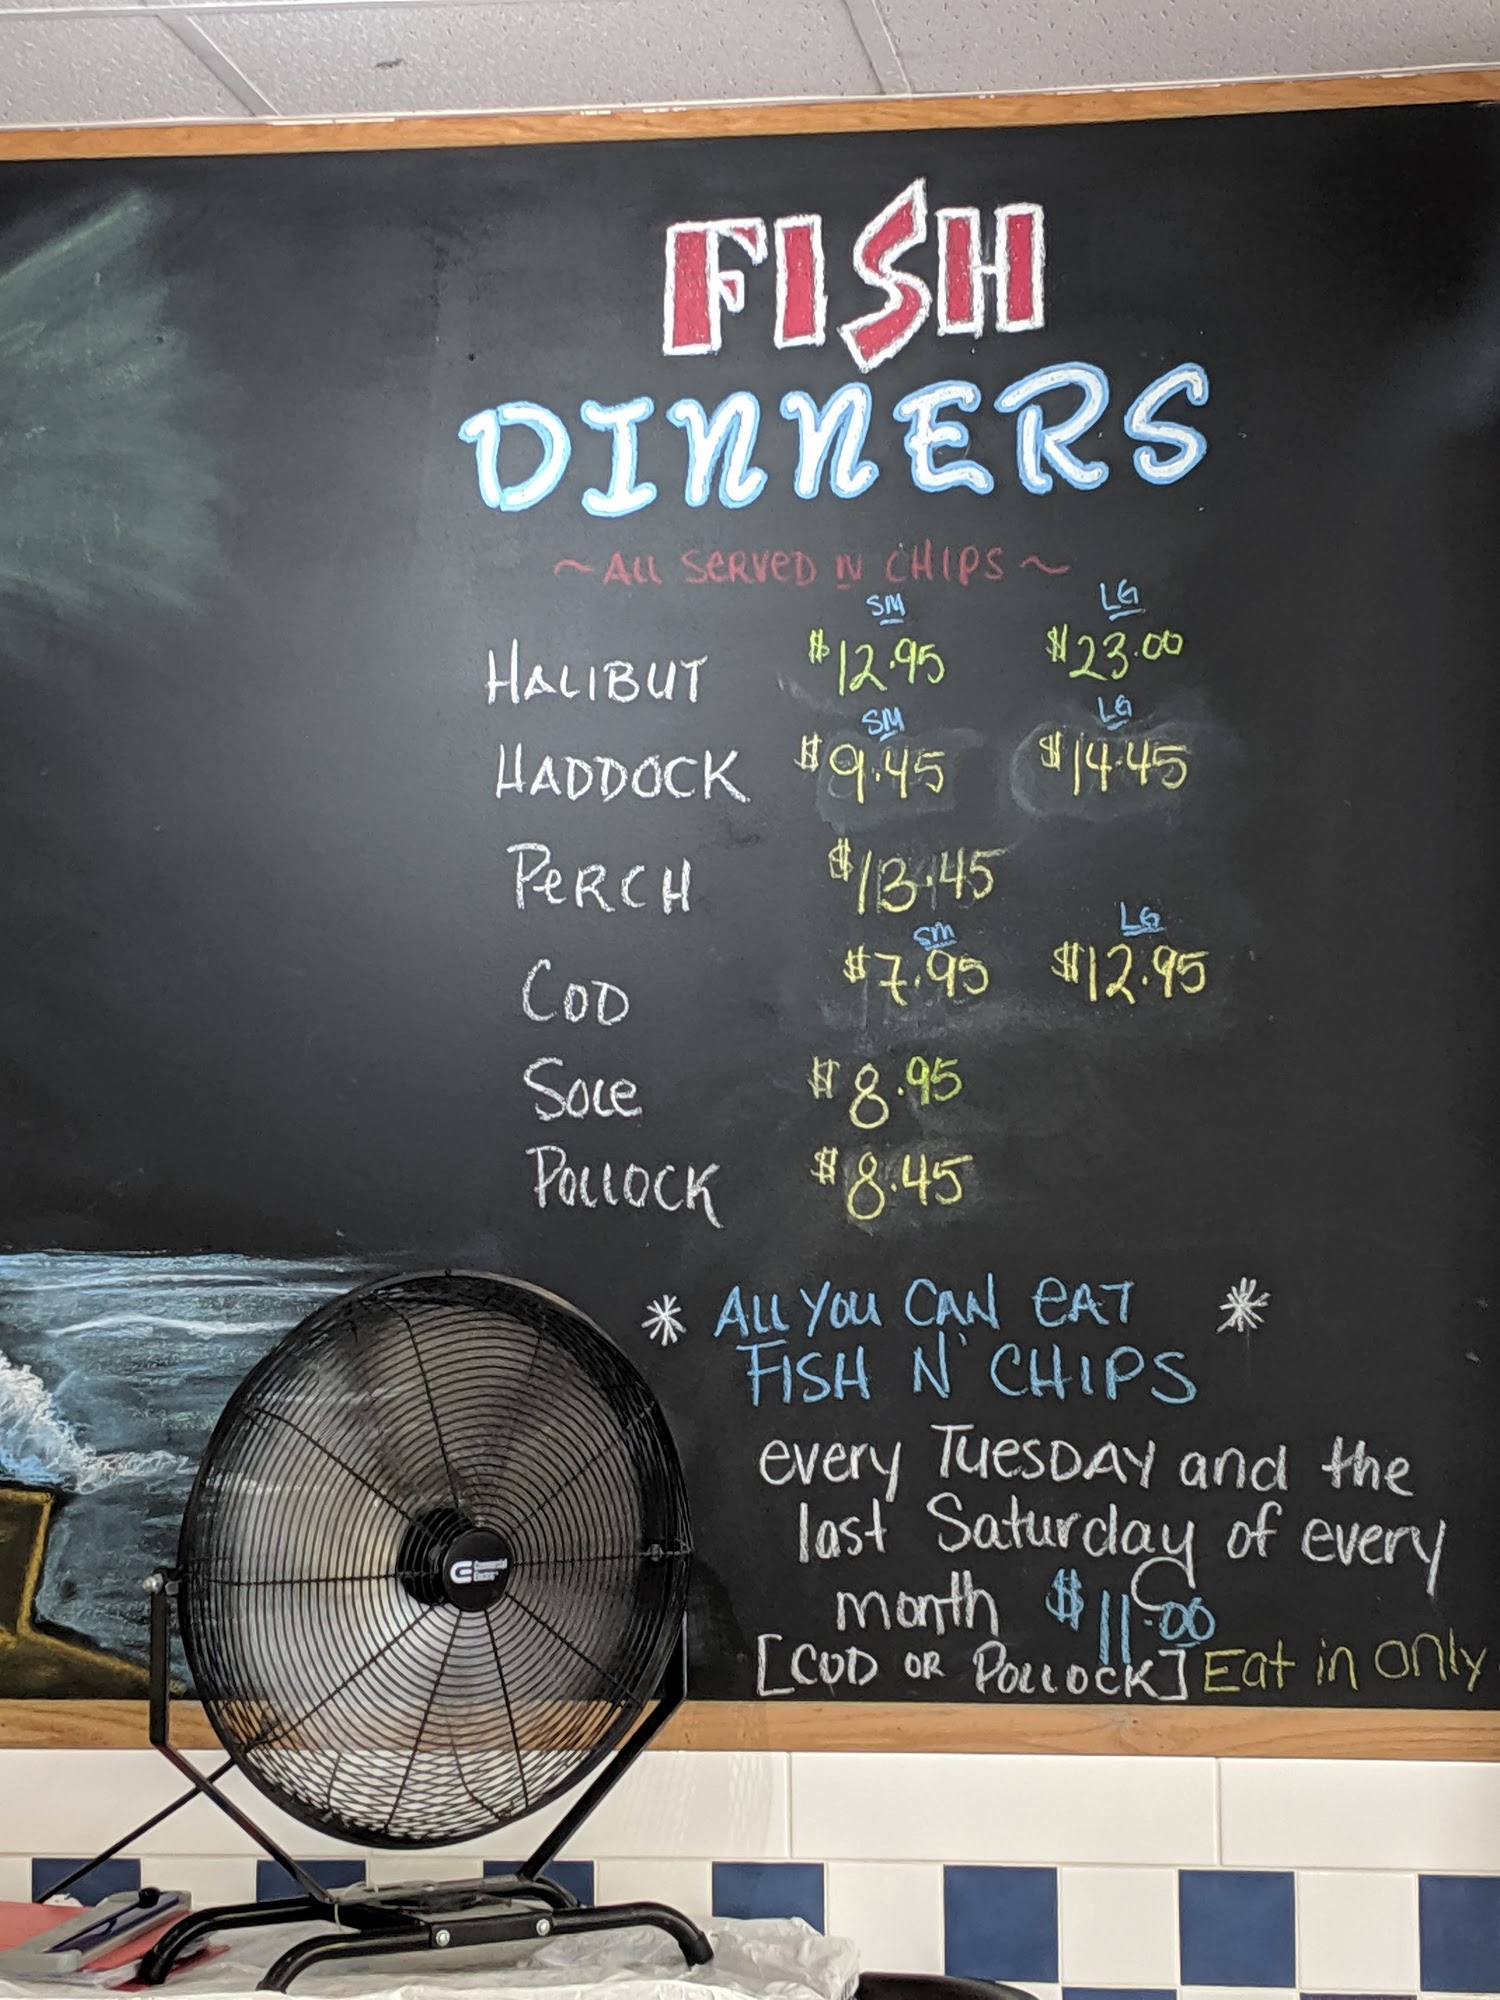 FISH
DINNERS
~ALL SERVED N CHIPS~
SM LG
HALIBUT $12.95 $23.00
SM LG
HADDOCK $9.45 $14.45
PERCH $13.45
SM LG
COD $7.95 $12.95
SOLE $8.95
POLLOCK $8.45
* ALL YOU CAN EAT *
FISH N' CHIPS
every TUESDAY and the
last Saturday of every
month $11.00
[COD OR POLLOCK] Eat in only
Commercial
Electric